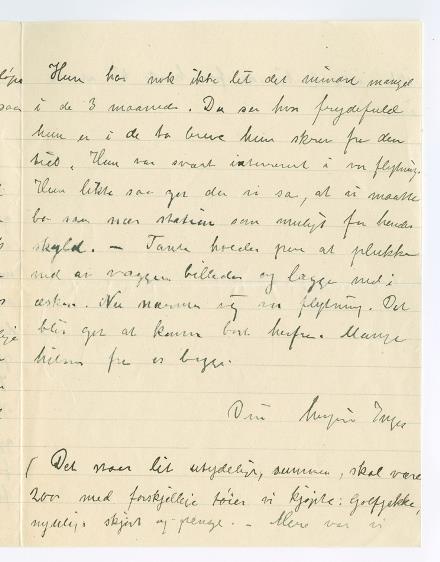 Hun har nok ikke lit det mindste mangel
i de 3 maaneder. Du ser hvor frydefuld
hun er i de to breve hun skrev fra den
tid. Hun var svært interesseret i vor flytning.
Hun likte saa godt da vi sa, at vi maatte
bo saa nær station som muligt for hendes
skyld. — Tante holder paa at plukke
ned av væggen billeder og lægge ned i
æsken. Nu nærmer sig vor flytning. Det
blir godt at komme bort herfra. Mange
hilsen fra os begge.
Din Inga
( Det staar lit utydelig, summen, skal være
200 med forskjellige tøier vi kjøpte: Golfjakke,
nydelig skjørt og penge. — Mere var vi